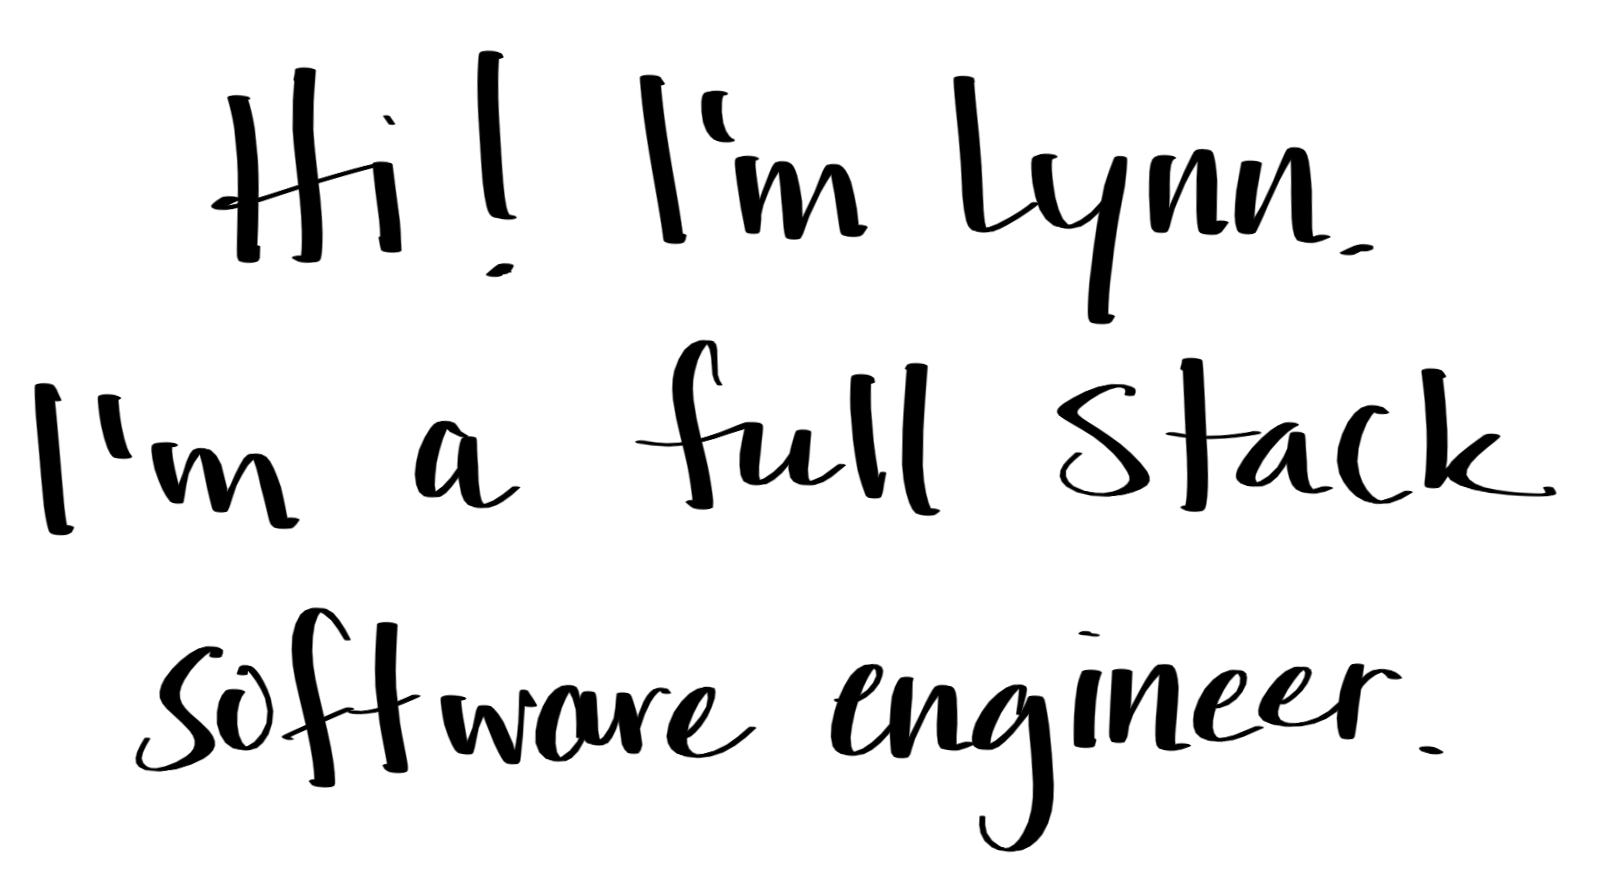 Hi! I'm Lynn.
I'm a full stack
software engineer.